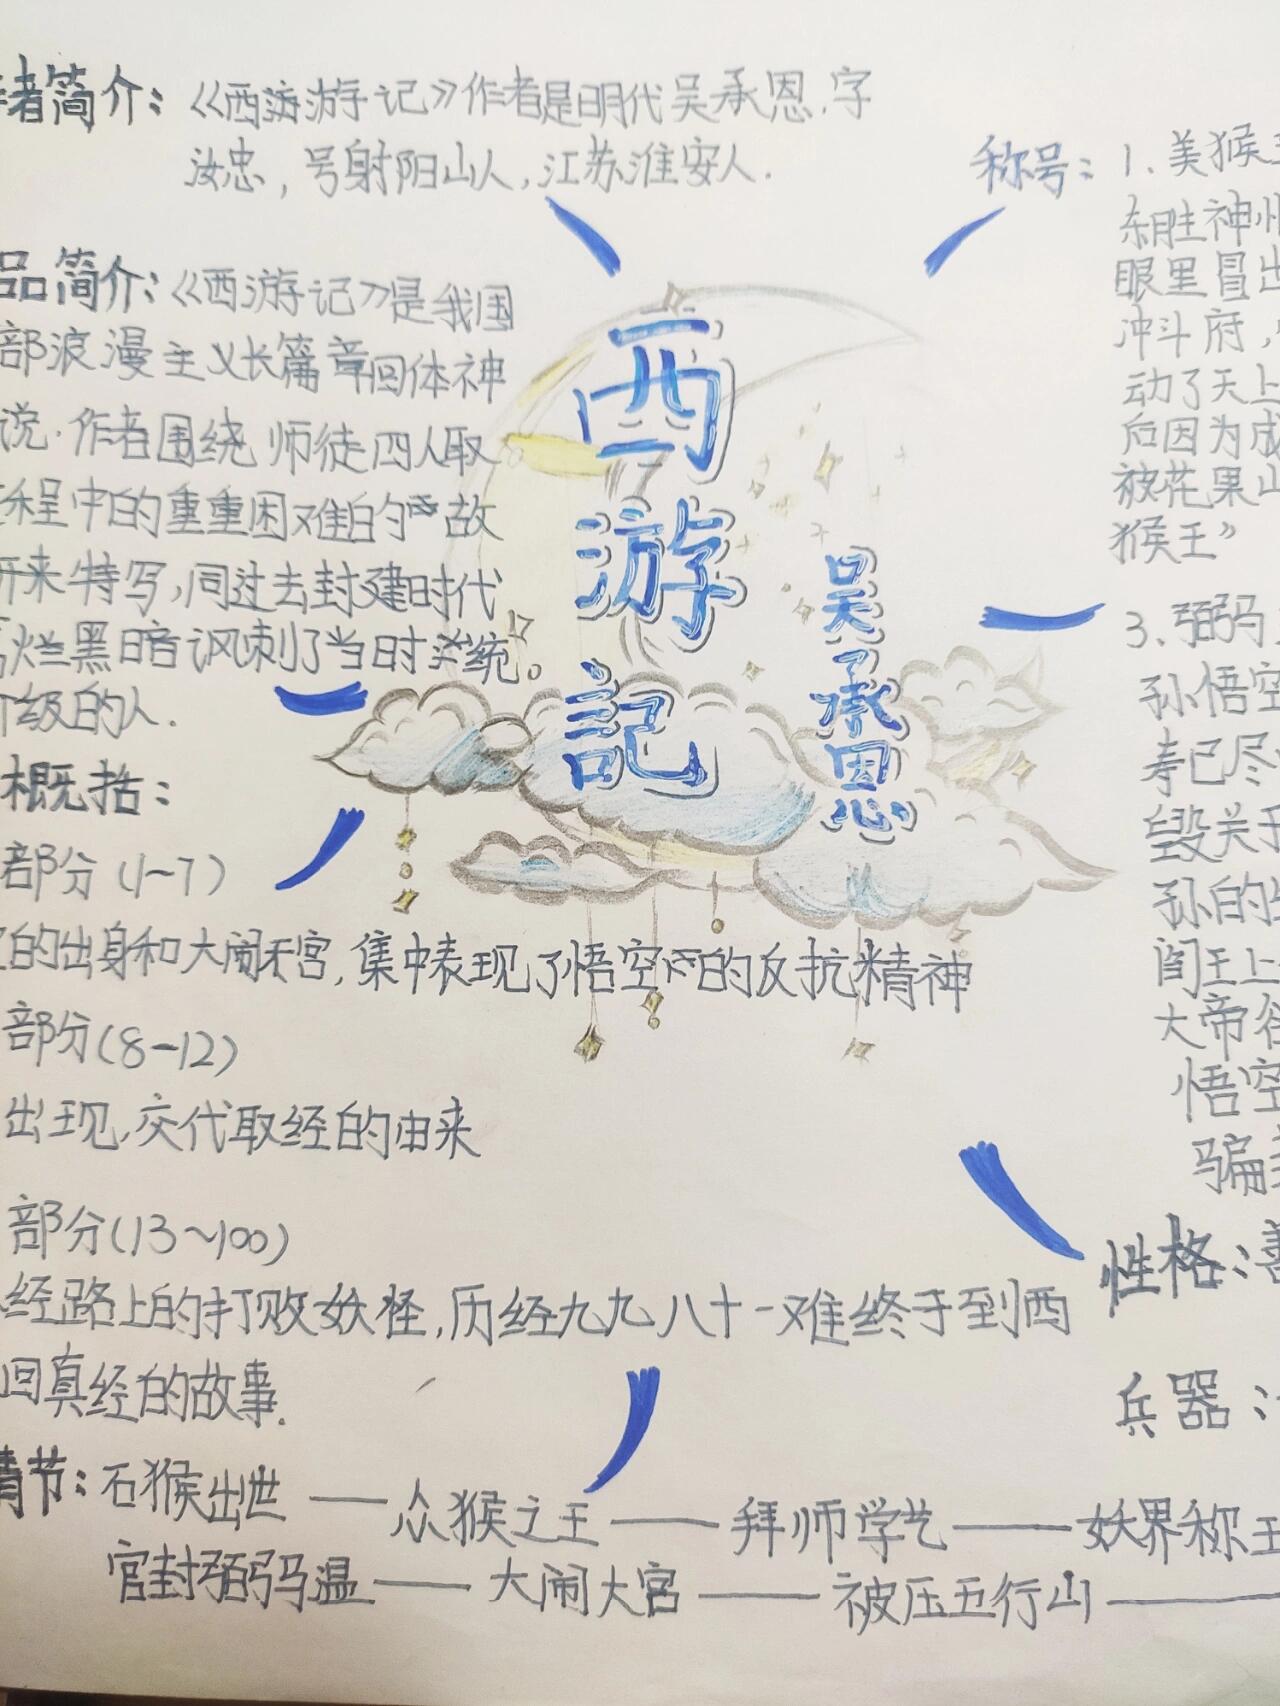 者简介：《西游游记》作者是明代吴承恩.字
汝忠，号射阳山人，江苏淮安人.
品简介：《西游记》是我国
部浪漫主义长篇章回体神
说.作者围绕师徒四人取
程中的重重困难的故
开来特写，同过去封建时代
烂黑暗讽刺了当时统
级的人.
概括：
部分（1~7）
的出身和大闹天宫，集中表现了悟空的反抗精神
部分(8-12)
出现，交代取经的由来
部分(13~100)
经路上的打败妖怪，历经九九八十一难终于到西
回真经的故事.
情节：石猴出世——众猴之王——拜师学艺——妖界称王
官封弼马温——大闹大宫——被压五行山——
西游記
吴承恩
称号：1.美猴王
东胜神州
眼里冒出
冲斗府，
动了天上
后因为成
被花果山
猴王》
3.弼马
孙悟空
寿已尽
毁关于
孙的生
阎王上
大帝
悟空
骗
性格：善
兵器：